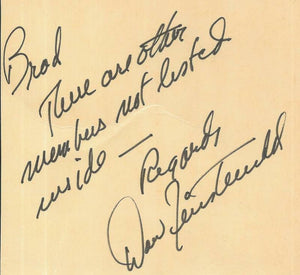 Brad
There are other
members not listed
inside —
Regards